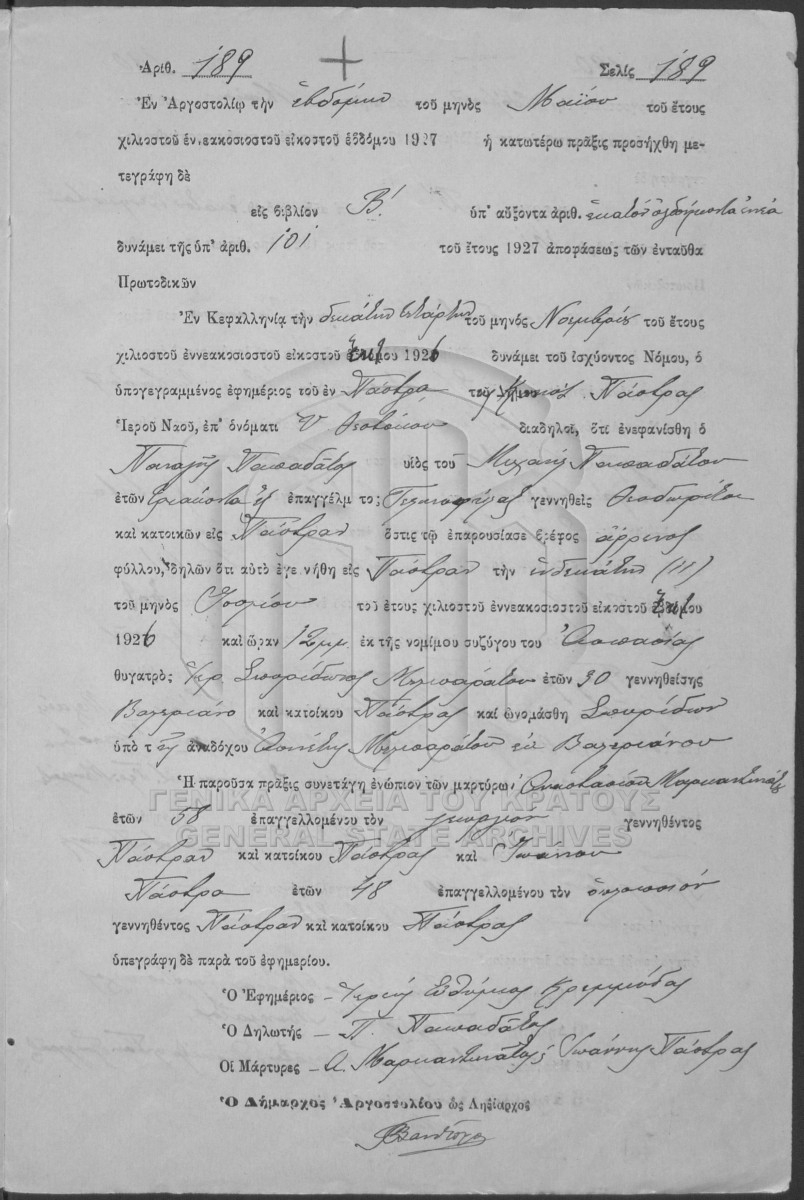 Ἀριθ. 189 Σελὶς 189
Ἐν Ἀργοστολίῳ τὴν ἑβδόμην τοῦ μηνὸς Μαΐου τοῦ ἔτους
χιλιοστοῦ ἐννεακοσιοστοῦ εἰκοστοῦ ἑβδόμου 1927 ἡ κατωτέρω πρᾶξις προσήχθη με-
τεγράφη δὲ
εἰς βιβλίον Β! ὑπ' αὔξοντα ἀριθ. ἑκατὸν ὀγδοήκοντα ἐννέα
δυνάμει τῆς ὑπ' ἀριθ. 101 τοῦ ἔτους 1927 ἀποφάσεως τῶν ἐνταῦθα
Πρωτοδικῶν
Ἐν Κεφαλληνίᾳ τὴν δεκάτην τετάρτην τοῦ μηνὸς Νοεμβρίου τοῦ ἔτους
χιλιοστοῦ ἐννεακοσιοστοῦ εἰκοστοῦ 1926 δυνάμει τοῦ ἰσχύοντος Νόμου, ὁ
ὑπογεγραμμένος ἐφημέριος τοῦ ἐν Πάστρᾳ Πάστρας
Ἱεροῦ Ναοῦ, ἐπ' ὀνόματι Υ. Θεοτόκου διαδηλοῖ, ὅτι ἐνεφανίσθη ὁ
Παναγῆς Παπαδάτος υἱὸς τοῦ Μιχαὴλ Παπαδάτου
ἐτῶν τριάκοντα ἓξ ἐπαγγέλματος γεννηθεὶς
καὶ κατοικῶν εἰς Πάστραν ὅστις τῷ ἐπαρουσίασε βρέφος ἄρρενος
φύλλου, δηλῶν ὅτι αὐτὸ ἐγεννήθη εἰς Πάστραν τὴν ἑνδεκάτην (11)
τοῦ μηνὸς Ἰουλίου τοῦ ἔτους χιλιοστοῦ ἐννεακοσιοστοῦ εἰκοστοῦ
1926 καὶ ὥραν 12 μμ. ἐκ τῆς νομίμου συζύγου του Ἀσπασίας
θυγατρὸς Ἱερ. Σπυρίδωνος ἐτῶν 30 γεννηθείσης
Βαλεριάνο καὶ κατοίκου Πάστρας καὶ ὠνομάσθη Σπυρίδων
ὑπὸ τῆς ἀναδόχου ἐκ Βαλεριάνου
Ἡ παροῦσα πρᾶξις συνετάγη ἐνώπιον τῶν μαρτύρων Ἀναστασίου Μαρκαντωνάτου
ἐτῶν 58 ἐπαγγελλομένου τὸν γεωργὸν γεννηθέντος
Πάστραν καὶ κατοίκου Πάστρας καὶ Ἰωάννου
Πάστρα ἐτῶν 48 ἐπαγγελλομένου τὸν
γεννηθέντος Πάστραν καὶ κατοίκου Πάστρας
ὑπεγράφη δὲ παρὰ τοῦ ἐφημερίου.
Ὁ Ἐφημέριος – Ἱερεὺς Εὐθύμιος Κρεμμύδας
Ὁ Δηλωτὴς – Π. Παπαδάτος
Οἱ Μάρτυρες – Α. Μαρκαντωνάτος, Ἰωάννης Πάστρας
Ὁ Δήμαρχος Ἀργοστολίου ὡς Ληξίαρχος
ΓΕΝΙΚΑ ΑΡΧΕΙΑ ΤΟΥ ΚΡΑΤΟΥΣ
GENERAL STATE ARCHIVES